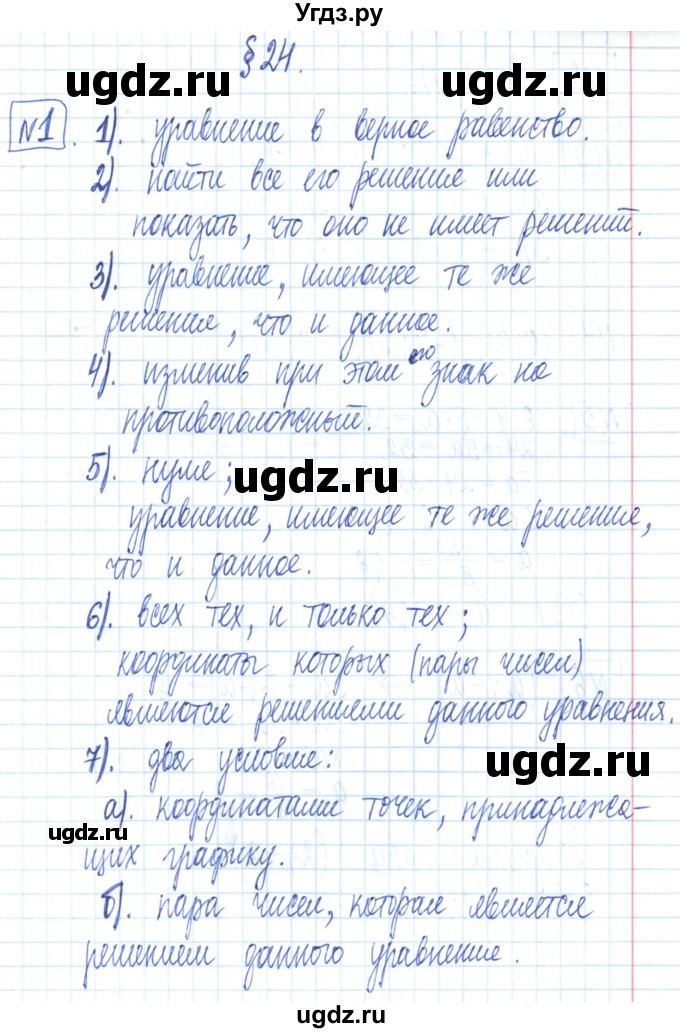 Угдз.ру
§24.
ugdz.ru
ugdz.ru
№1. 1). уравнение в верное равенство.
2). найти все его решение или
показать, что оно не имеет решений.
ugdz.ru
3). уравнение, имеющее те же
решения, что и данное.
4). изменив при этом его знак на
противоположный.
5). нуле;
ugdz.ru
уравнение, имеющее те же решение,
что и данное.
ugdz.ru
6). всех тех, и только тех;
координаты которых (пары чисел)
ugdz.ru
являются решениями данного уравнения.
7). два условие:
ugdz.ru
а). координатами точек, принадлежа-
ugdz.ru
щих графику.
б). пара чисел, которая является
решением данного уравнение.
ugdz.ru
ugdz.ru